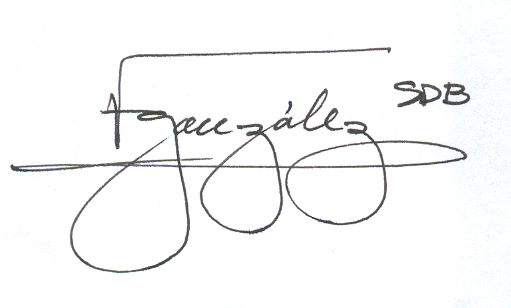 González SDB